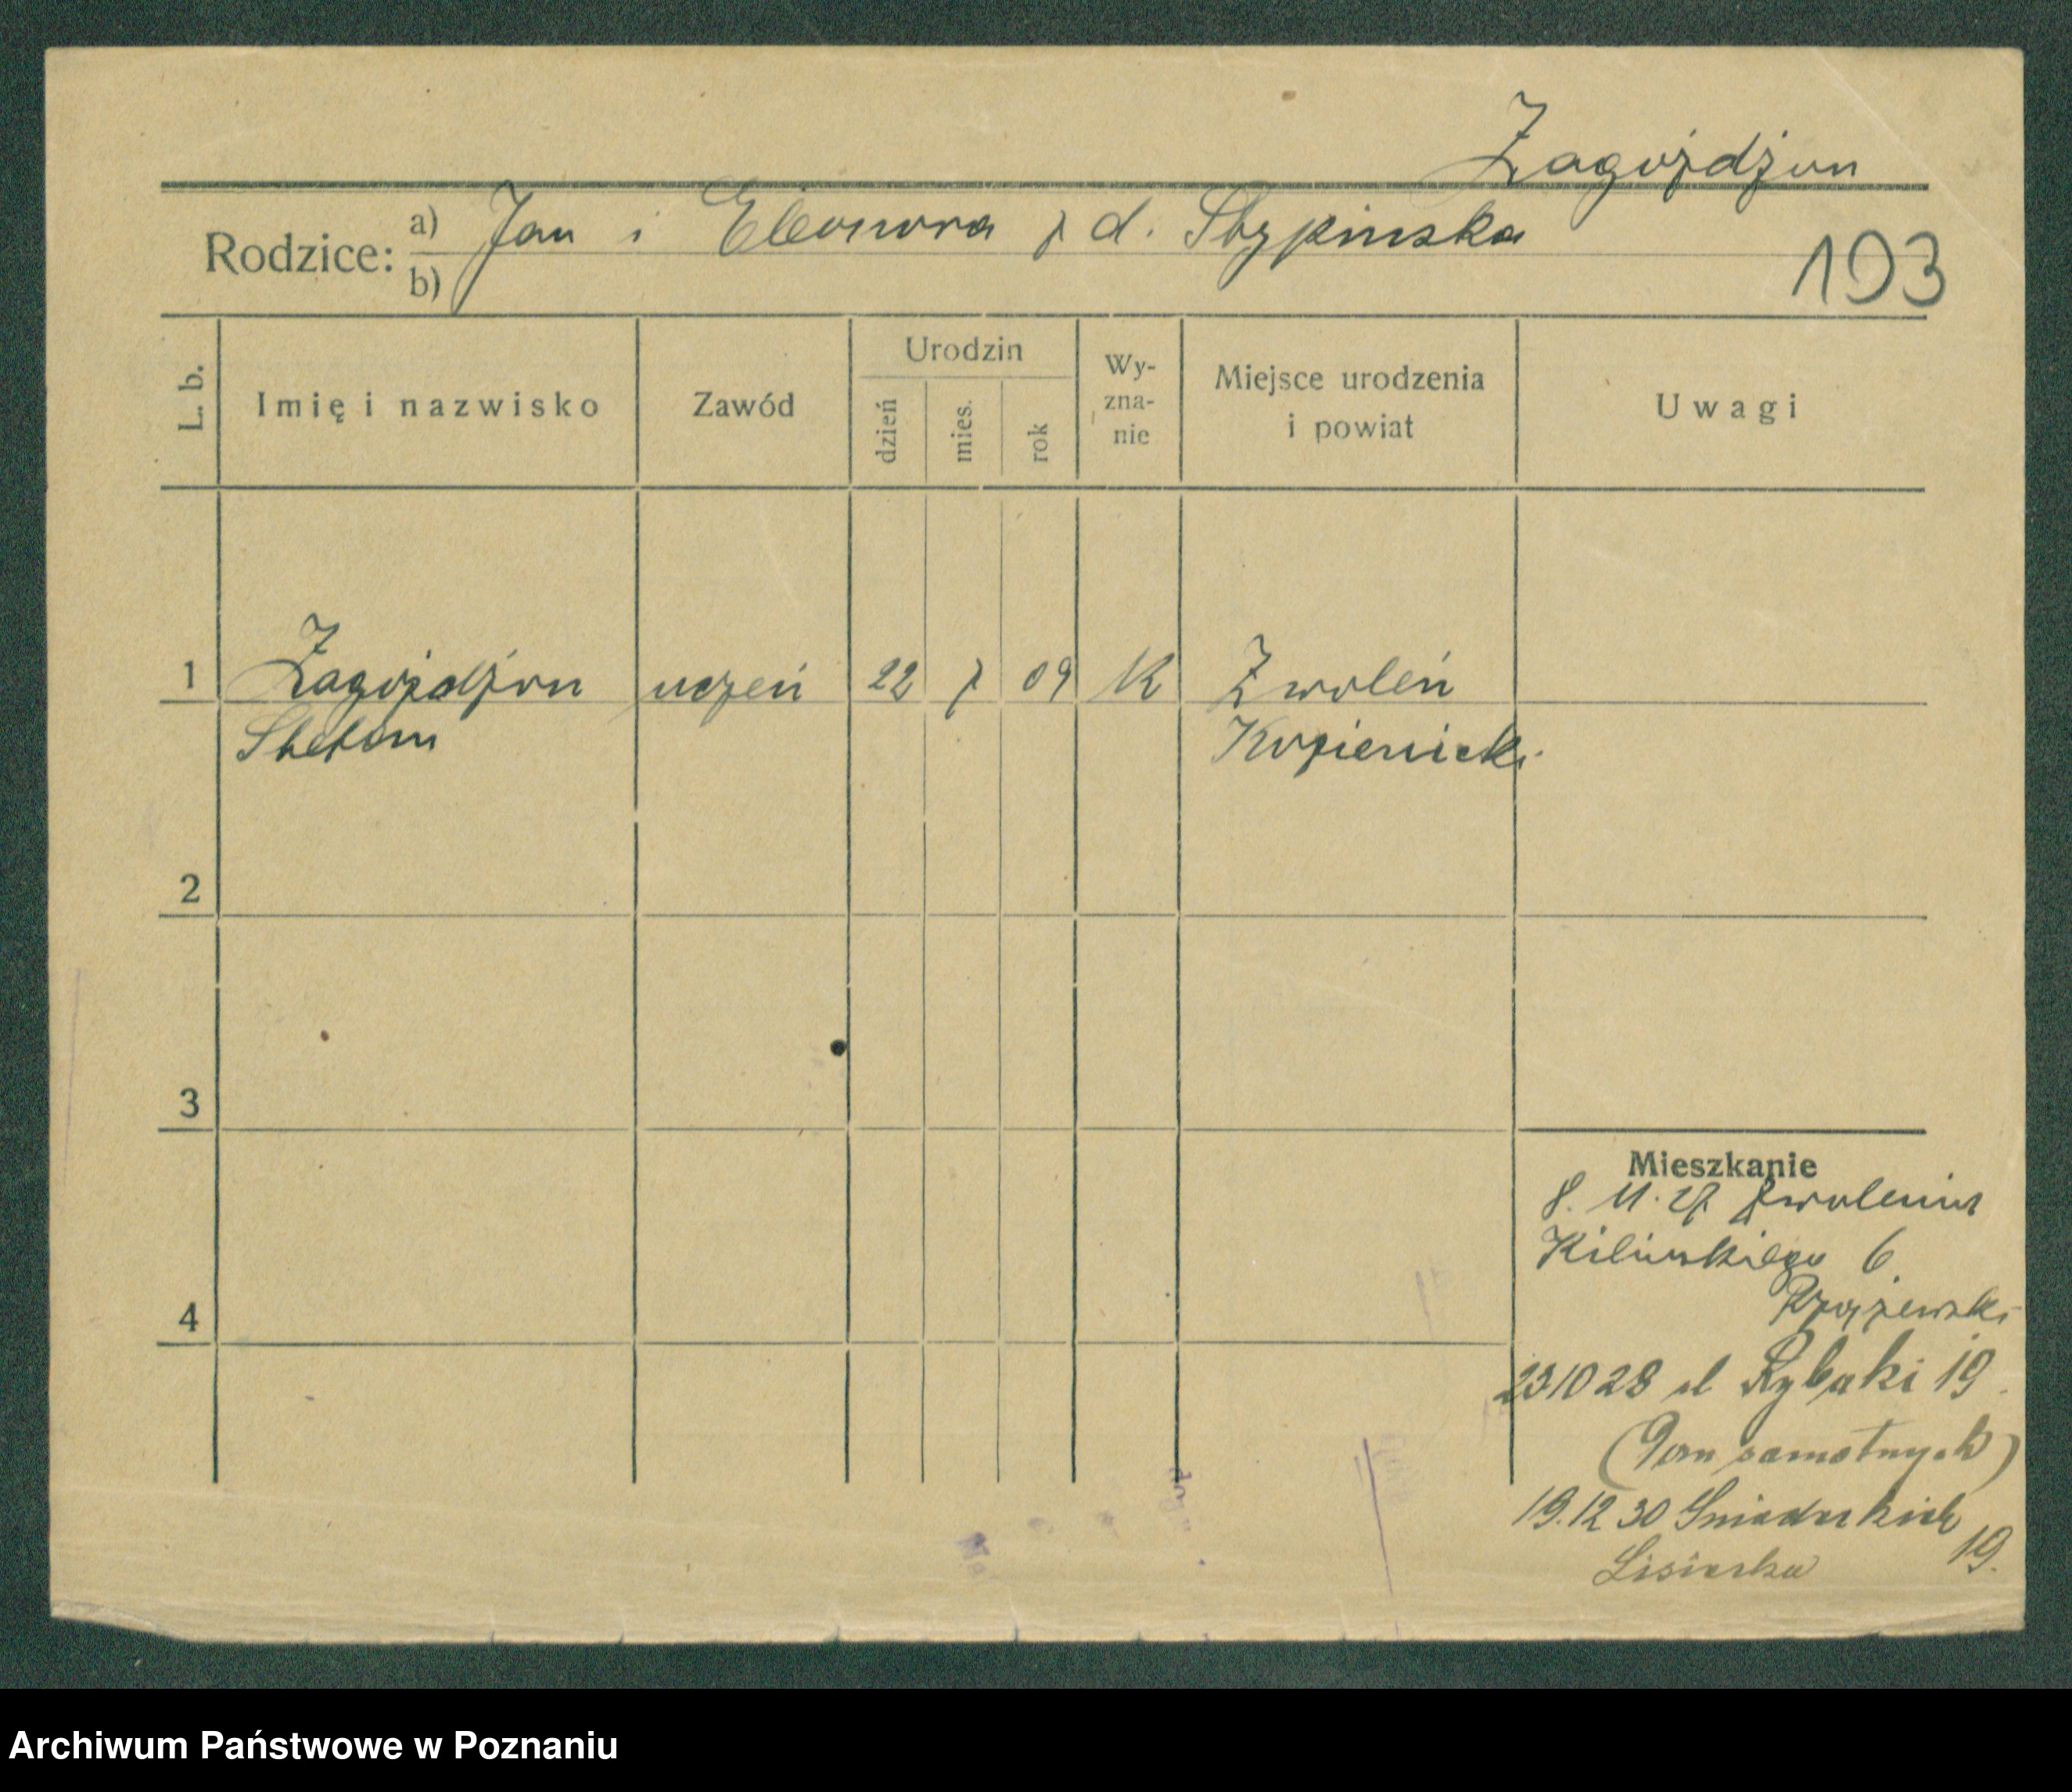 Zagożdżon
Rodzice: a) Jan i Eleonora z d. Stypinska
b)
193
L. b.
Imię i nazwisko
Zawód
Urodzin
dzień
mies.
rok
Wy-
zna-
nie
Miejsce urodzenia
i powiat
Uwagi
1 Zagożdżon uczeń 22 7 09 K Zwoleń
Stefan Kozienicki
2
3
4
Mieszkanie
8. 11. 27 Zwolenia
Kilińskiego 6
23 10 28 ul Rybaki 19
(Dom samotnych)
19. 12 30 Śniadeckich
19.
Archiwum Państwowe w Poznaniu